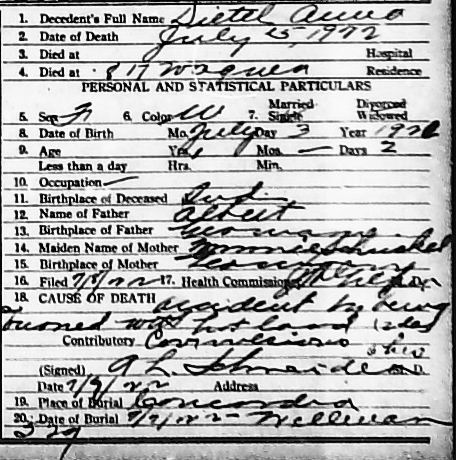 1. Decedent's Full Name Dietel Anna
2. Date of Death July 5, 1922
3. Died at Hospital
4. Died at 817 Wagner Residence
PERSONAL AND STATISTICAL PARTICULARS
5. Sex F 6. Color W 7. Married Single Divorced Widowed
8. Date of Birth Mo. July Day 3 Year 1920
9. Age Yrs. Mos. — Days 2
Less than a day Hrs. Min.
10. Occupation —
11. Birthplace of Deceased Ind.
12. Name of Father Albert
13. Birthplace of Father Germany
14. Maiden Name of Mother
15. Birthplace of Mother Germany
16. Filed 7/8/22 17. Health Commissioner
18. CAUSE OF DEATH accident by being
burned with hot
Contributory Convulsions
(Signed) A. L. Schneider M.D.
Date 7/9/22 Address
19. Place of Burial Concordia
20. Date of Burial 7/7/22 Wellman